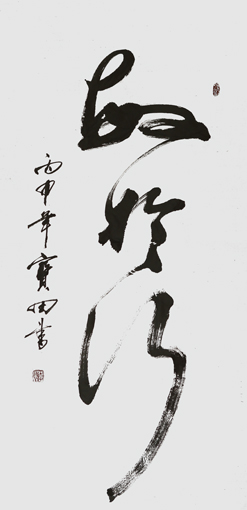 敏於行
丙申年寶田書